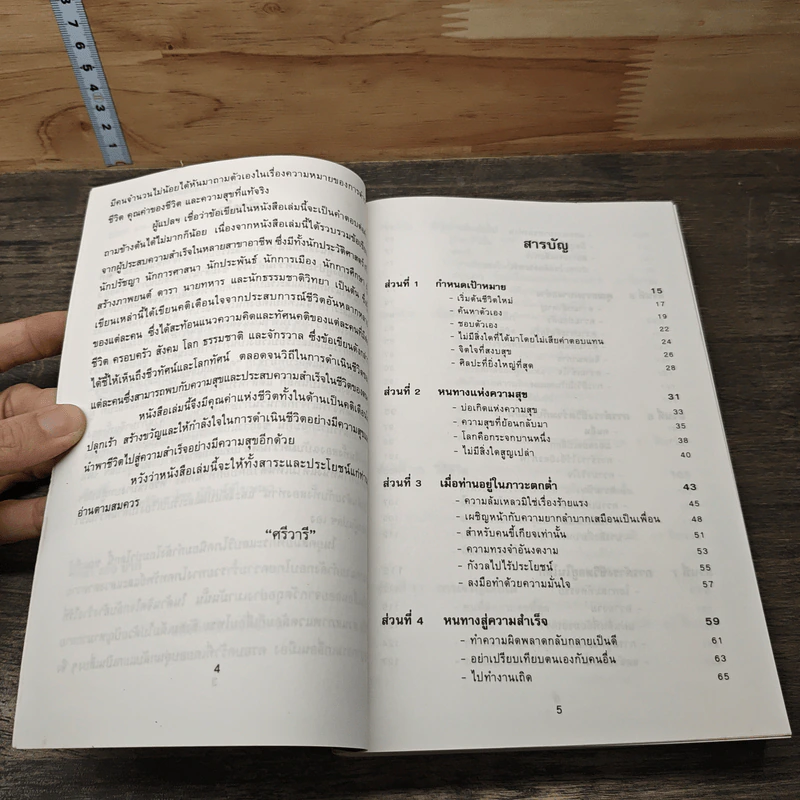 8
7
6
5
4
3
2
1
มีคนจำนวนไม่น้อยได้หันมาถามตัวเองในเรื่องความหมายของการ
ชีวิต คุณค่าของชีวิต และความสุขที่แท้จริง
ผู้แปลฯ เชื่อว่าข้อเขียนในหนังสือเล่มนี้จะเป็นคำตอบ
ถามข้างต้นได้ไม่มากก็น้อย เนื่องจากหนังสือเล่มนี้ได้รวบรวมข้อ
จากผู้ประสบความสำเร็จในหลายสาขาอาชีพ ซึ่งมีทั้งนักประวัติศาสตร์
นักปรัชญา นักการศาสนา นักประพันธ์ นักการเมือง นักการศึกษา
สร้างภาพยนต์ ดารา นายทหาร และนักธรรมชาติวิทยา เป็นต้น
เขียนเหล่านี้ได้เขียนคติเตือนใจจากประสบการณ์ชีวิตอันหลากหลาย
ของแต่ละคน ซึ่งได้สะท้อนแนวความคิดและทัศนคติของแต่ละคนที่มี
ชีวิต ครอบครัว สังคม โลก ธรรมชาติ และจักรวาล ซึ่งข้อเขียนดัง
ได้ชี้ให้เห็นถึงชีวทัศน์และโลกทัศน์ ตลอดจนวิถีในการดำเนินชีวิต
แต่ละคนซึ่งสามารถพบกับความสุขและประสบความสำเร็จในชีวิตของ
หนังสือเล่มนี้จึงมีคุณค่าแห่งชีวิตทั้งในด้านเป็นคติเตือน
ปลุกเร้า สร้างขวัญและให้กำลังใจในการดำเนินชีวิตอย่างมีความสุข
นำพาชีวิตไปสู่ความสำเร็จอย่างมีความสุขอีกด้วย
หวังว่าหนังสือเล่มนี้จะให้ทั้งสาระและประโยชน์แก่ท่าน
อ่านตามสมควร
“ศรีวารี”
4
สารบัญ
ส่วนที่ 1 กำหนดเป้าหมาย 15
- เริ่มต้นชีวิตใหม่ 17
- ค้นหาตัวเอง 19
- ชอบตัวเอง 22
- ไม่มีสิ่งใดที่ได้มาโดยไม่เสียค่าตอบแทน 24
- จิตใจที่สงบสุข 26
- ศิลปะที่ยิ่งใหญ่ที่สุด 28
ส่วนที่ 2 หนทางแห่งความสุข 31
- บ่อเกิดแห่งความสุข 33
- ความสุขที่ย้อนกลับมา 35
- โลกคือกระจกบานหนึ่ง 38
- ไม่มีสิ่งใดสูญเปล่า 40
ส่วนที่ 3 เมื่อท่านอยู่ในภาวะตกต่ำ 43
- ความล้มเหลวมิใช่เรื่องร้ายแรง 45
- เผชิญหน้ากับความยากลำบากเสมือนเป็นเพื่อน 48
- สำหรับคนขี้เกียจเท่านั้น 51
- ความทรงจำอันงดงาม 53
- กังวลไปไร้ประโยชน์ 55
- ลงมือทำด้วยความมั่นใจ 57
ส่วนที่ 4 หนทางสู่ความสำเร็จ 59
- ทำความผิดพลาดกลับกลายเป็นดี 61
- อย่าเปรียบเทียบตนเองกับคนอื่น 63
- ไปทำงานเถิด 65
5